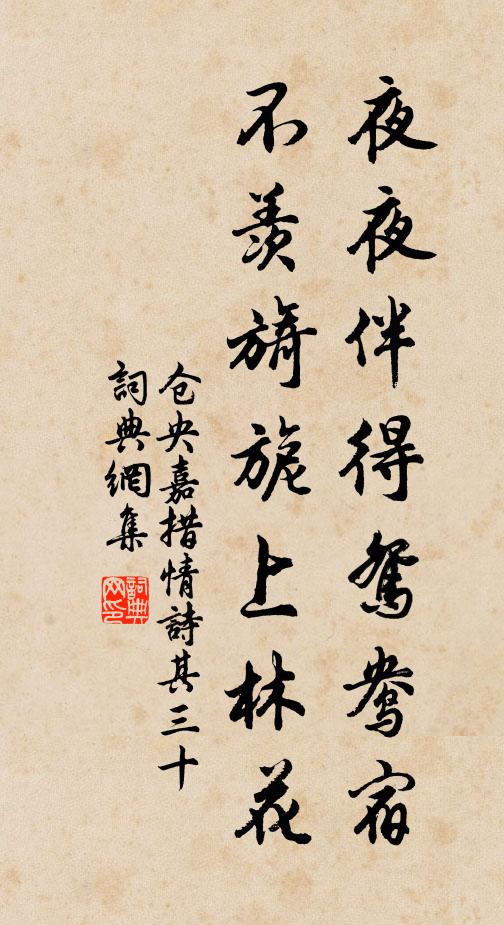 夜夜伴得鴛鴦宿
不羨旖旎上林花
仓央嘉措情詩其三十
詞典網集
詞典網印